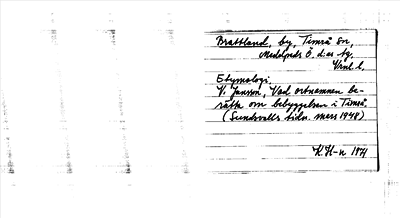 Brattland, by, Timrå sn,
Medelpads Ö. d:as tg,
Vnl. l,
Etymologi,
V. Jansson, Vad ortnamnen be-
rätta om bebyggelsen i Timrå.
(Sundsvalls tidn. mars 1948)
K. H-n 1971